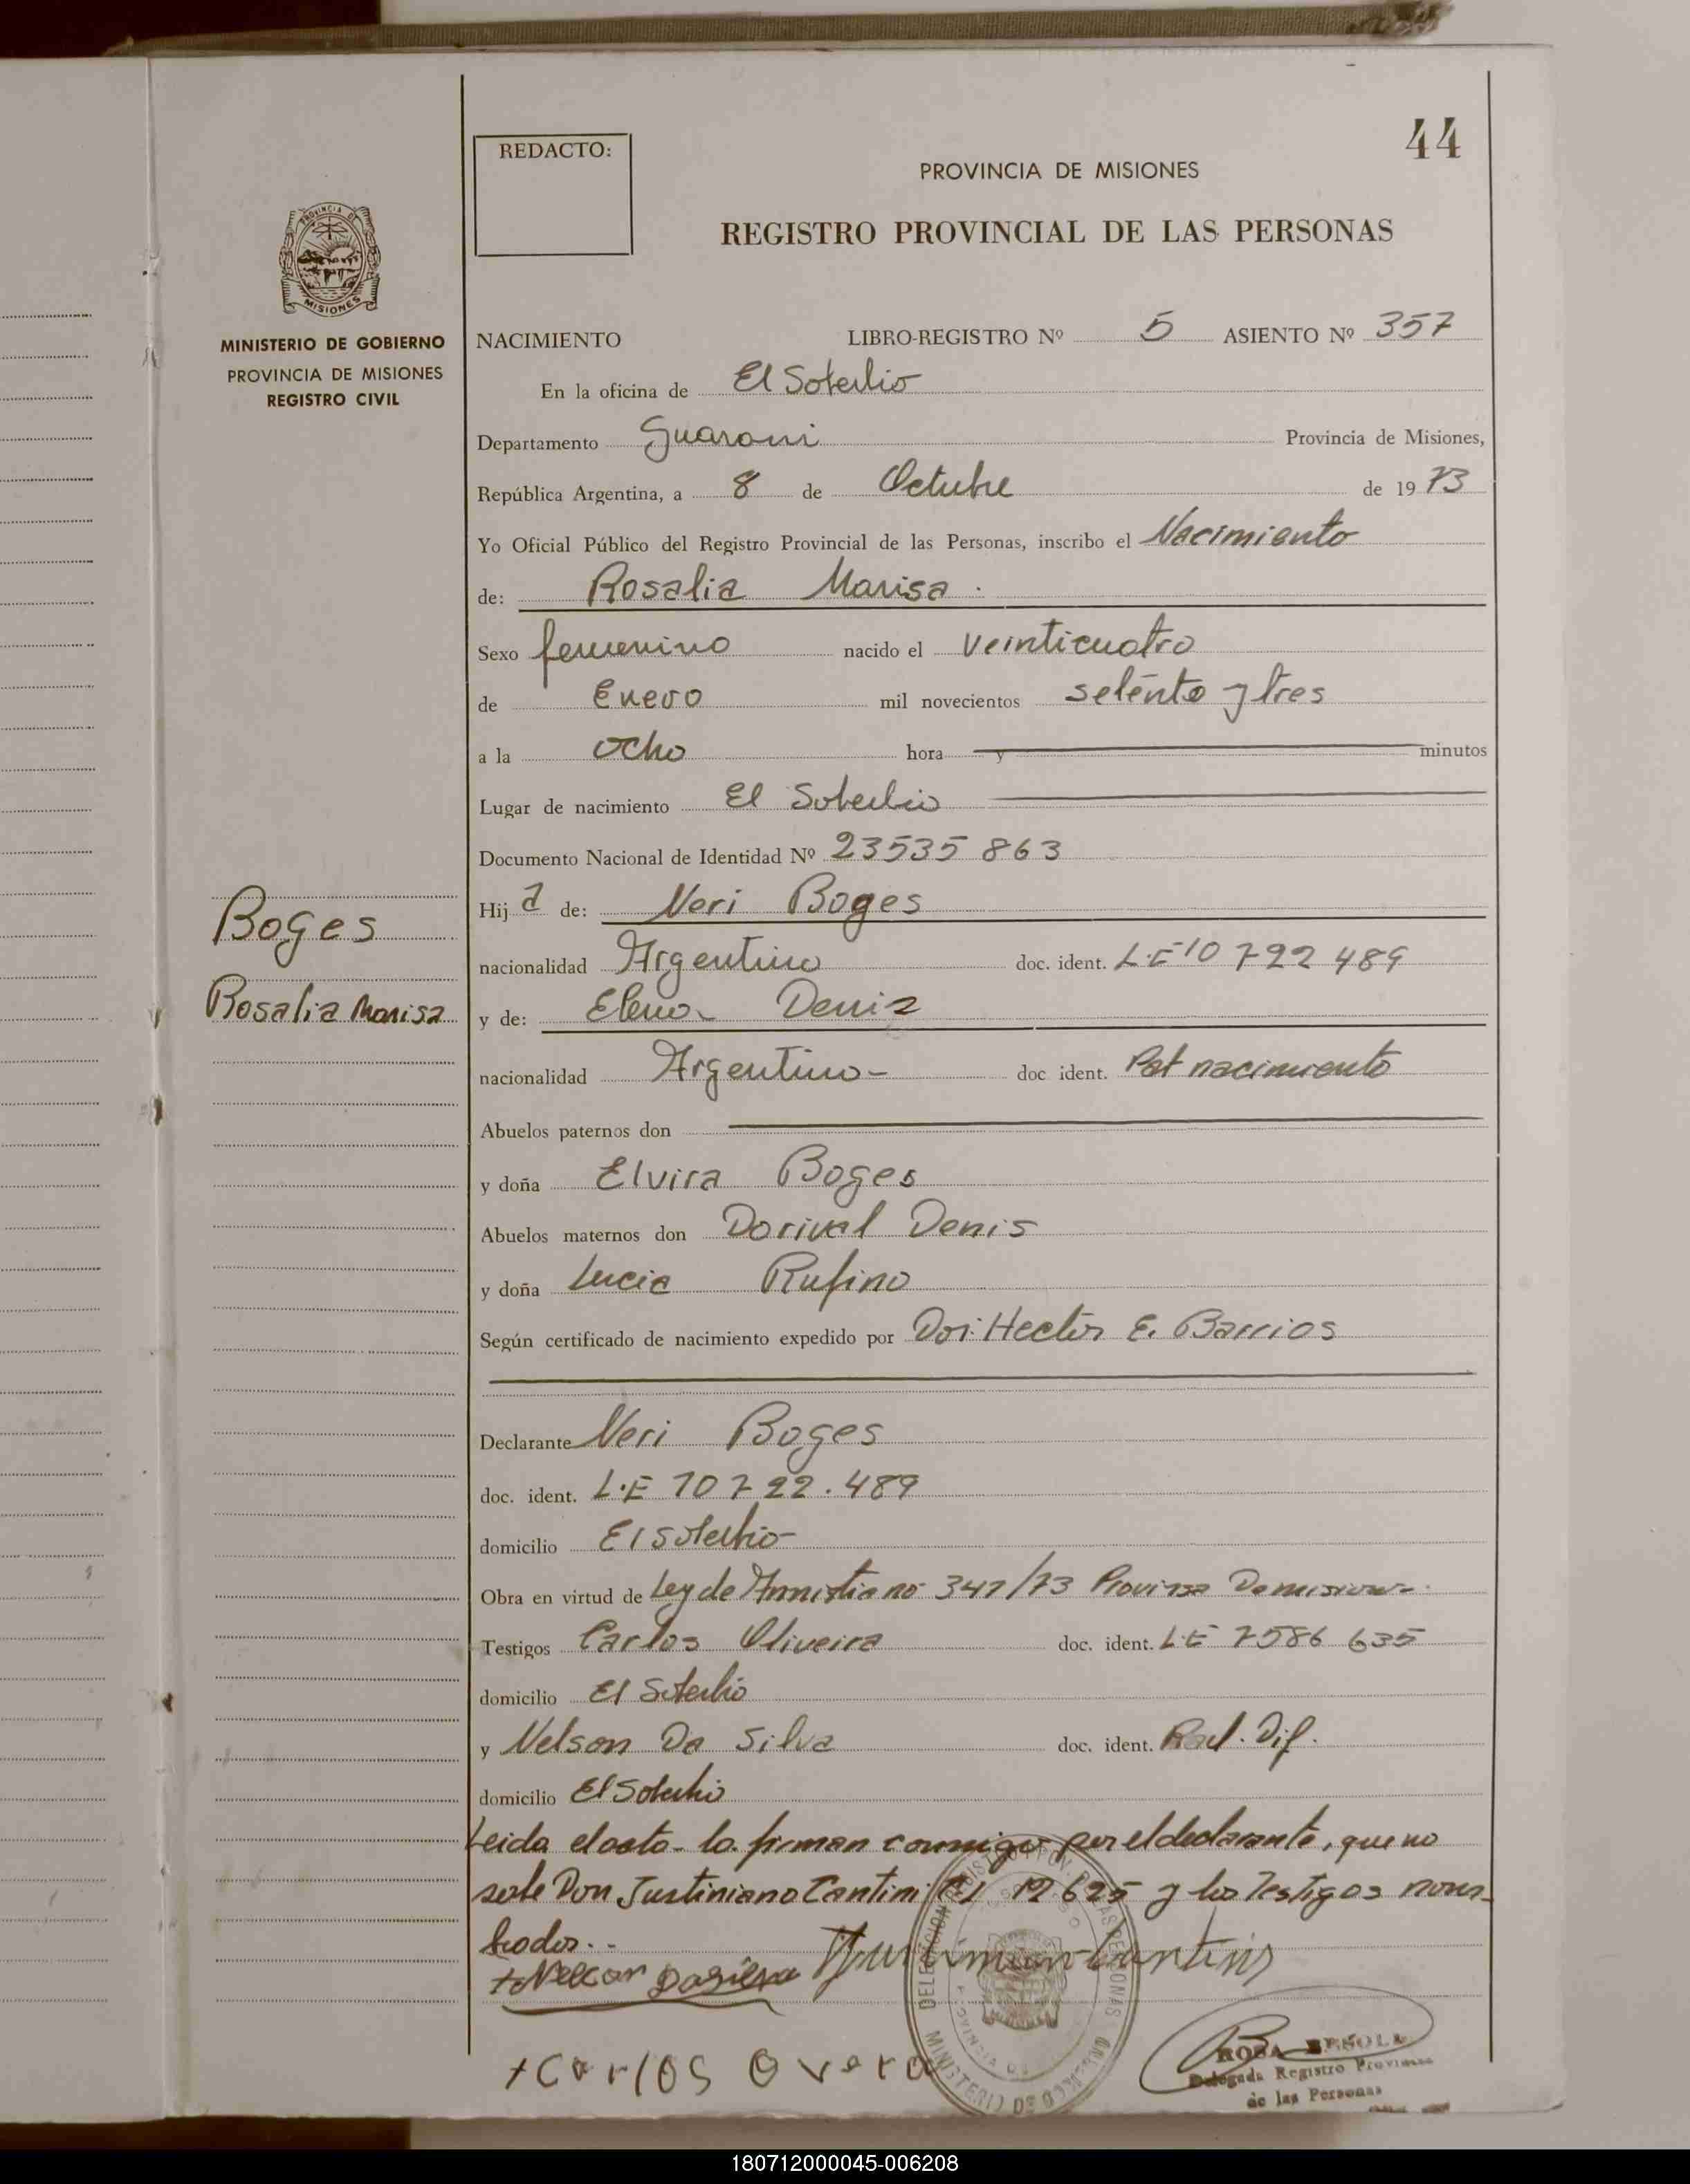 44
REDACTO:
PROVINCIA DE MISIONES
REGISTRO PROVINCIAL DE LAS PERSONAS
PROVINCIA DE
MISIONES
MINISTERIO DE GOBIERNO
PROVINCIA DE MISIONES
REGISTRO CIVIL
NACIMIENTO LIBRO-REGISTRO Nº 5 ASIENTO Nº 357
En la oficina de El Soberbio
Departamento Guarani Provincia de Misiones,
República Argentina, a 8 de Octubre de 1973
Yo Oficial Público del Registro Provincial de las Personas, inscribo el Nacimiento
de: Rosalia Marisa.
Sexo femenino nacido el veinticuatro
de Enero mil novecientos setenta y tres
a la ocho hora y minutos
Lugar de nacimiento El Soberbio
Documento Nacional de Identidad Nº 23535863
Hija de: Neri Boges
nacionalidad Argentino doc. ident. L.E 10 722 489
y de: Elena Deniz
nacionalidad Argentina- doc ident. Part nacimiento
Abuelos paternos don
y doña Elvira Boges
Abuelos maternos don Dorival Denis
y doña Lucia Rufino
Según certificado de nacimiento expedido por Hector E. Barrios
Boges
Rosalia Marisa
Declarante Neri Boges
doc. ident. L.E 10 722.489
domicilio El Soberbio-
Obra en virtud de Ley de Amnistia no 347/73 Provinsa De misiones-
Testigos Carlos Oliveira doc. ident. L.E 7586 635
domicilio El Soberbio
y Nelson Da Silva doc. ident. Dif.
domicilio El Soberbio
Leida el acta lo firman conmigo por el declarante, que no
sabe Don Justiniano Cantini CI 12 625 y los Testigos nom-
brados..
+Nelcon Dasilva Justiniano Cantini
+Carlos Overa
ROSA
Delegada Registro Provincial
de las Personas
180712000045-006208